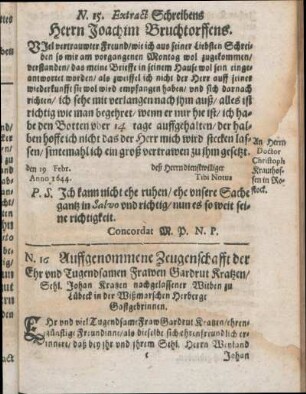 N. 15. Extract Schreibens
Herrn Joachim Bruchtorffens.
VJel vertrauwter Freund/wie ich aus seiner Liebsten Schrei-
ben so mir am vorgangenen Montag wol zugekommen/
verstanden/das meine Brieffe in seinem Hause wol sein einge-
antwortet worden/als zweiffel ich nicht der Herr auff seiner
wiederkunfft sie wol wird empfangen haben/ und sich darnach
richten/ich sehe mit verlangen nach ihm auß/ alles ist
richtig wie man begehret/wenn er nur hie ist/ ich ha-
be den Botten uber 14 tage auffgehalten/der hal-
ben hoffe ich nicht das der Herr mich wird stecken las-
sen/sintemahl ich ein groß vertrawen zu ihm gesetzt.
An Herrn
Doctor
Christoph
Krauthof-
fen in Ro-
stock.
den 19. Febr.
Anno 1644.
deß Herrn dienstwilliger
Titi Notus
P. S. Jch kann nicht ehe ruhen/ ehe unsere Sache
gantz in Salvo und richtig/nun es so weit sei-
ne richtigkeit.
Concordat M. P. N. P.
N. 16 Auffgenommene Zeugenschafft der
Ehr und Tugendsamen Frawen Gardrut Kratzen/
Sehl. Johan Kratzen nachgelassener Witben zu
Lübeck in der Wißmarschen Herberge
Gastgebrinnen.
EHr und viel Tugendsame Fraw Gardrut Kratzen/ ehrn-
günstige Freundinn/als dieselbe sich ehrenfreundlich er-
innert/ daß bey jhr und jhrem Sehl. Herrn Weyland
c
Johan